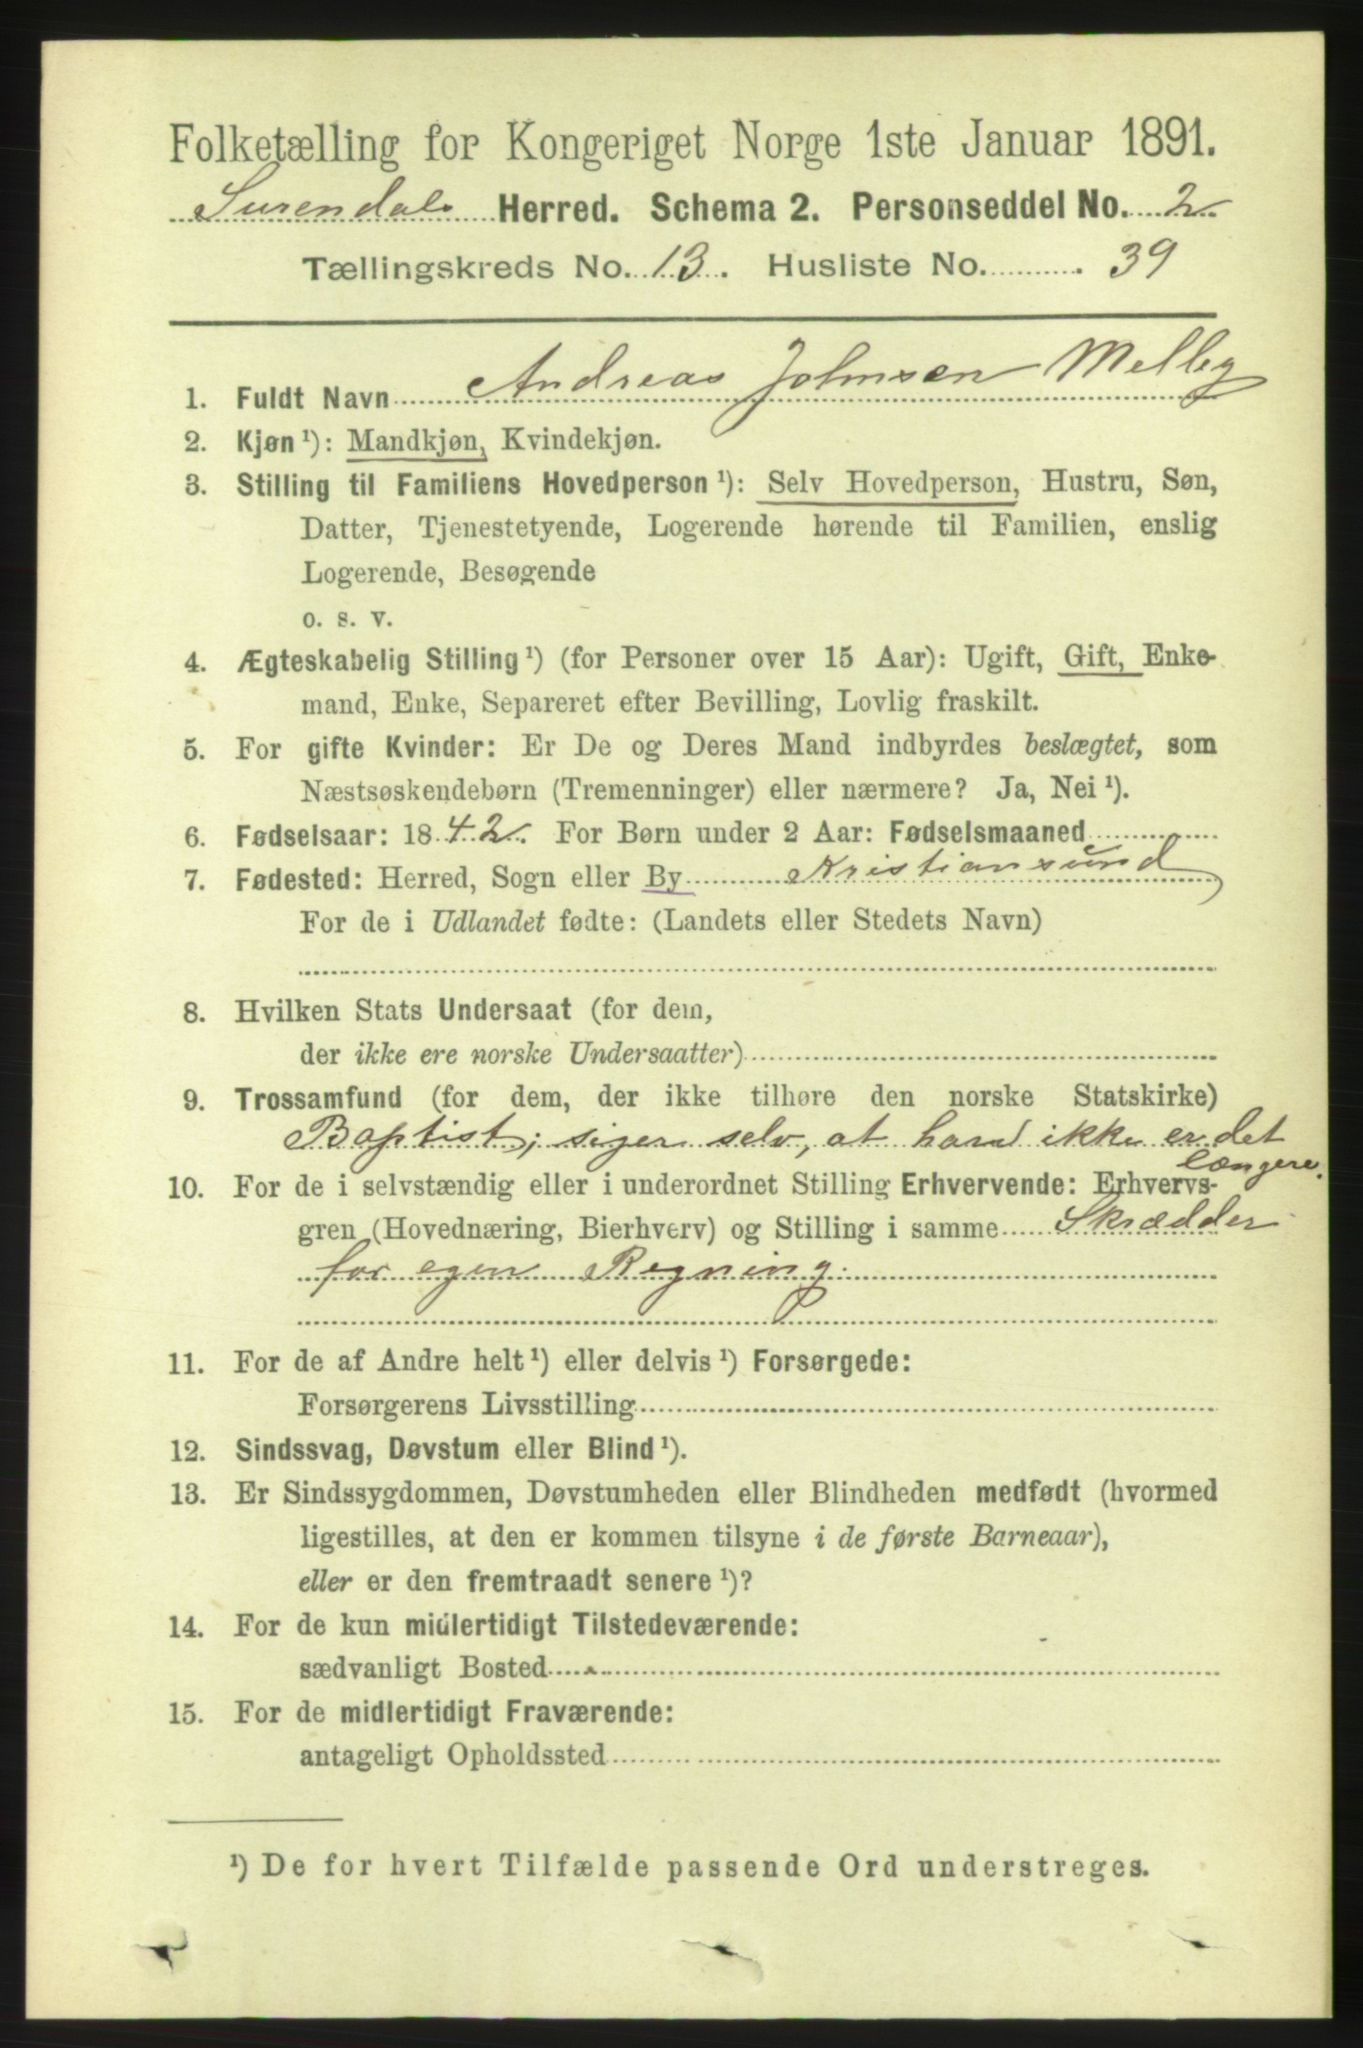 Folketælling for Kongeriget Norge 1ste Januar 1891.
Surendals Herred. Schema 2. Personseddel No. 2.
Tællingskreds No. 13. Husliste No. 39
1. Fuldt Navn Andreas Johnsen Melby
2. Kjøn ¹): Mandkjøn, Kvindekjøn.
3. Stilling til Familiens Hovedperson ¹): Selv Hovedperson, Hustru, Søn,
Datter, Tjenestetyende, Logerende hørende til Familien, enslig
Logerende, Besøgende
o. s. v.
4. Ægteskabelig Stilling ¹) (for Personer over 15 Aar): Ugift, Gift, Enke-
mand, Enke, Separeret efter Bevilling, Lovlig fraskilt.
5. For gifte Kvinder: Er De og Deres Mand indbyrdes beslægtet, som
Næstsøskendebørn (Tremenninger) eller nærmere? Ja, Nei ¹).
6. Fødselsaar: 1842. For Børn under 2 Aar: Fødselsmaaned
7. Fødested: Herred, Sogn eller By Kristiansund
For de i Udlandet fødte: (Landets eller Stedets Navn)
8. Hvilken Stats Undersaat (for dem,
der ikke ere norske Undersaatter)
9. Trossamfund (for dem, der ikke tilhøre den norske Statskirke)
Baptist; siger selv, at han ikke er det
længere.
10. For de i selvstændig eller i underordnet Stilling Erhvervende: Erhvervs-
gren (Hovednæring, Bierhverv) og Stilling i samme Skrædder
for egen Regning.
11. For de af Andre helt ¹) eller delvis ¹) Forsørgede:
Forsørgerens Livsstilling
12. Sindssvag, Døvstum eller Blind ¹).
13. Er Sindssygdommen, Døvstumheden eller Blindheden medfødt (hvormed
ligestilles, at den er kommen tilsyne i de første Barneaar),
eller er den fremtraadt senere ¹)?
14. For de kun midlertidigt Tilstedeværende:
sædvanligt Bosted
15. For de midlertidigt Fraværende:
antageligt Opholdssted
¹) De for hvert Tilfælde passende Ord understreges.